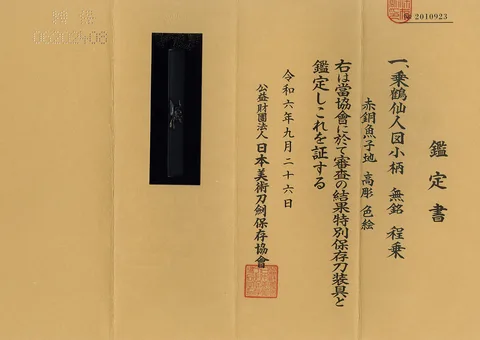 № 2010923
鑑定書
一、乗鶴仙人図小柄 無銘 程乗
赤銅魚子地 高彫 色絵
右は當協會に於て審査の結果特別保存刀装具と
鑑定しこれを証する
令和六年九月二十六日
公益財團法人 日本美術刀劍保存協會